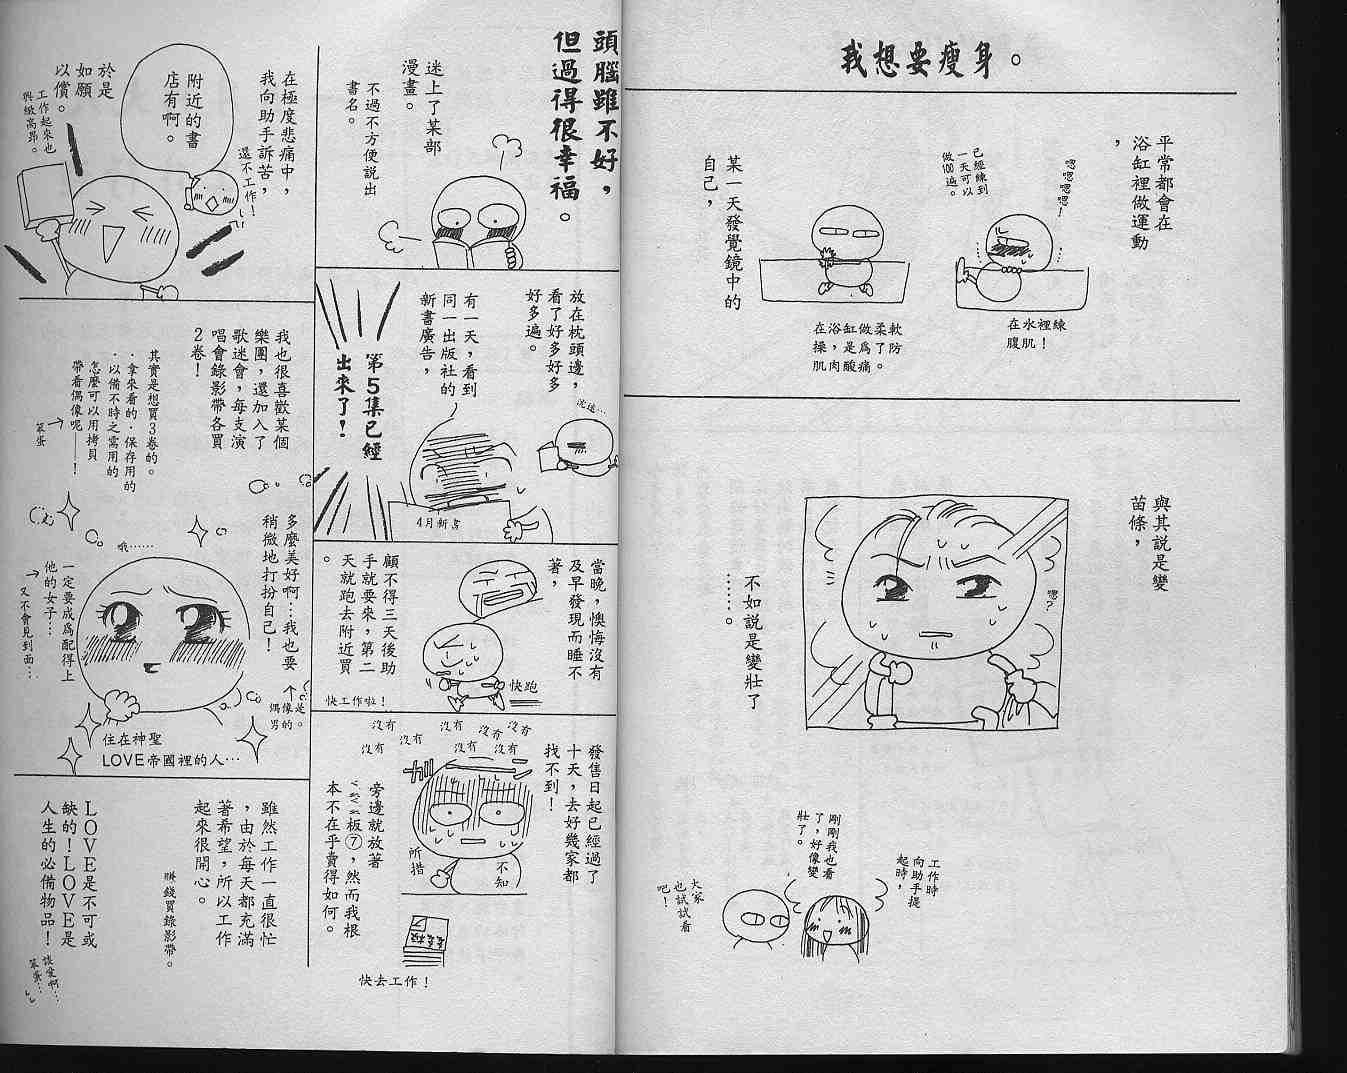 我想要瘦身。
平常都會在
浴缸裡做運動
，
嗯嗯嗯嗯！
已經練到
一天可以
做個遍。
在水裡練
腹肌！
在浴缸做柔軟
操，是為了防
肌肉酸痛。
某一天發覺鏡中的
自己，
與其說是變
苗條，
嗯？
不如說是變壯了
……。
工作時
向助手提
起時，
剛剛我也看
了，好像變
壯了。
大家
也試試看
吧！
頭腦雖不好，
但過得很幸福。
迷上了某部
漫畫。
不過不方便說出
書名。
放在枕頭邊，
看了好多好多
好多遍。
沈迷…
有一天，看到
同一出版社的
新書廣告，
第5集已經
出來了！
4月新書
當晚，懊悔沒有
及早發現而睡不
著，
顧不得三天後助
手就要來，第二
天就跑去附近買
。
快跑
快工作啦！
發售日起已經過了
十天，去好幾家都
找不到！
沒有
沒有
沒有
沒有
沒有
沒有
沒有
沒有
不知
所措
旁邊就放著
板⑦，然而我根
本不在乎賣得如何。
快去工作！
在極度悲痛中，
我向助手訴苦，
還不工作！
附近的書
店有啊。
於是
如願
以償。
工作起來也
興緻高昂。
我也很喜歡某個
樂團，還加入了
歌迷會，每支演
唱會錄影帶各買
2卷！
其實是想買3卷的。
．拿來看的．保存用的
．以備不時之需用的
怎麼可以用拷貝
帶看偶像呢——！
笨蛋
多麼美好啊…我也要
稍微地打扮自己！
哦……
一定要成為配得上
他的女子…
又不會見到面…
偶像是
男的。
住在神聖
LOVE帝國裡的人…
雖然工作一直很忙
，由於每天都充滿
著希望，所以工作
起來很開心。
賺錢買錄影帶。
LOVE是不可或
缺的！LOVE是
人生的必備物品！
談愛啊…
笨蛋…